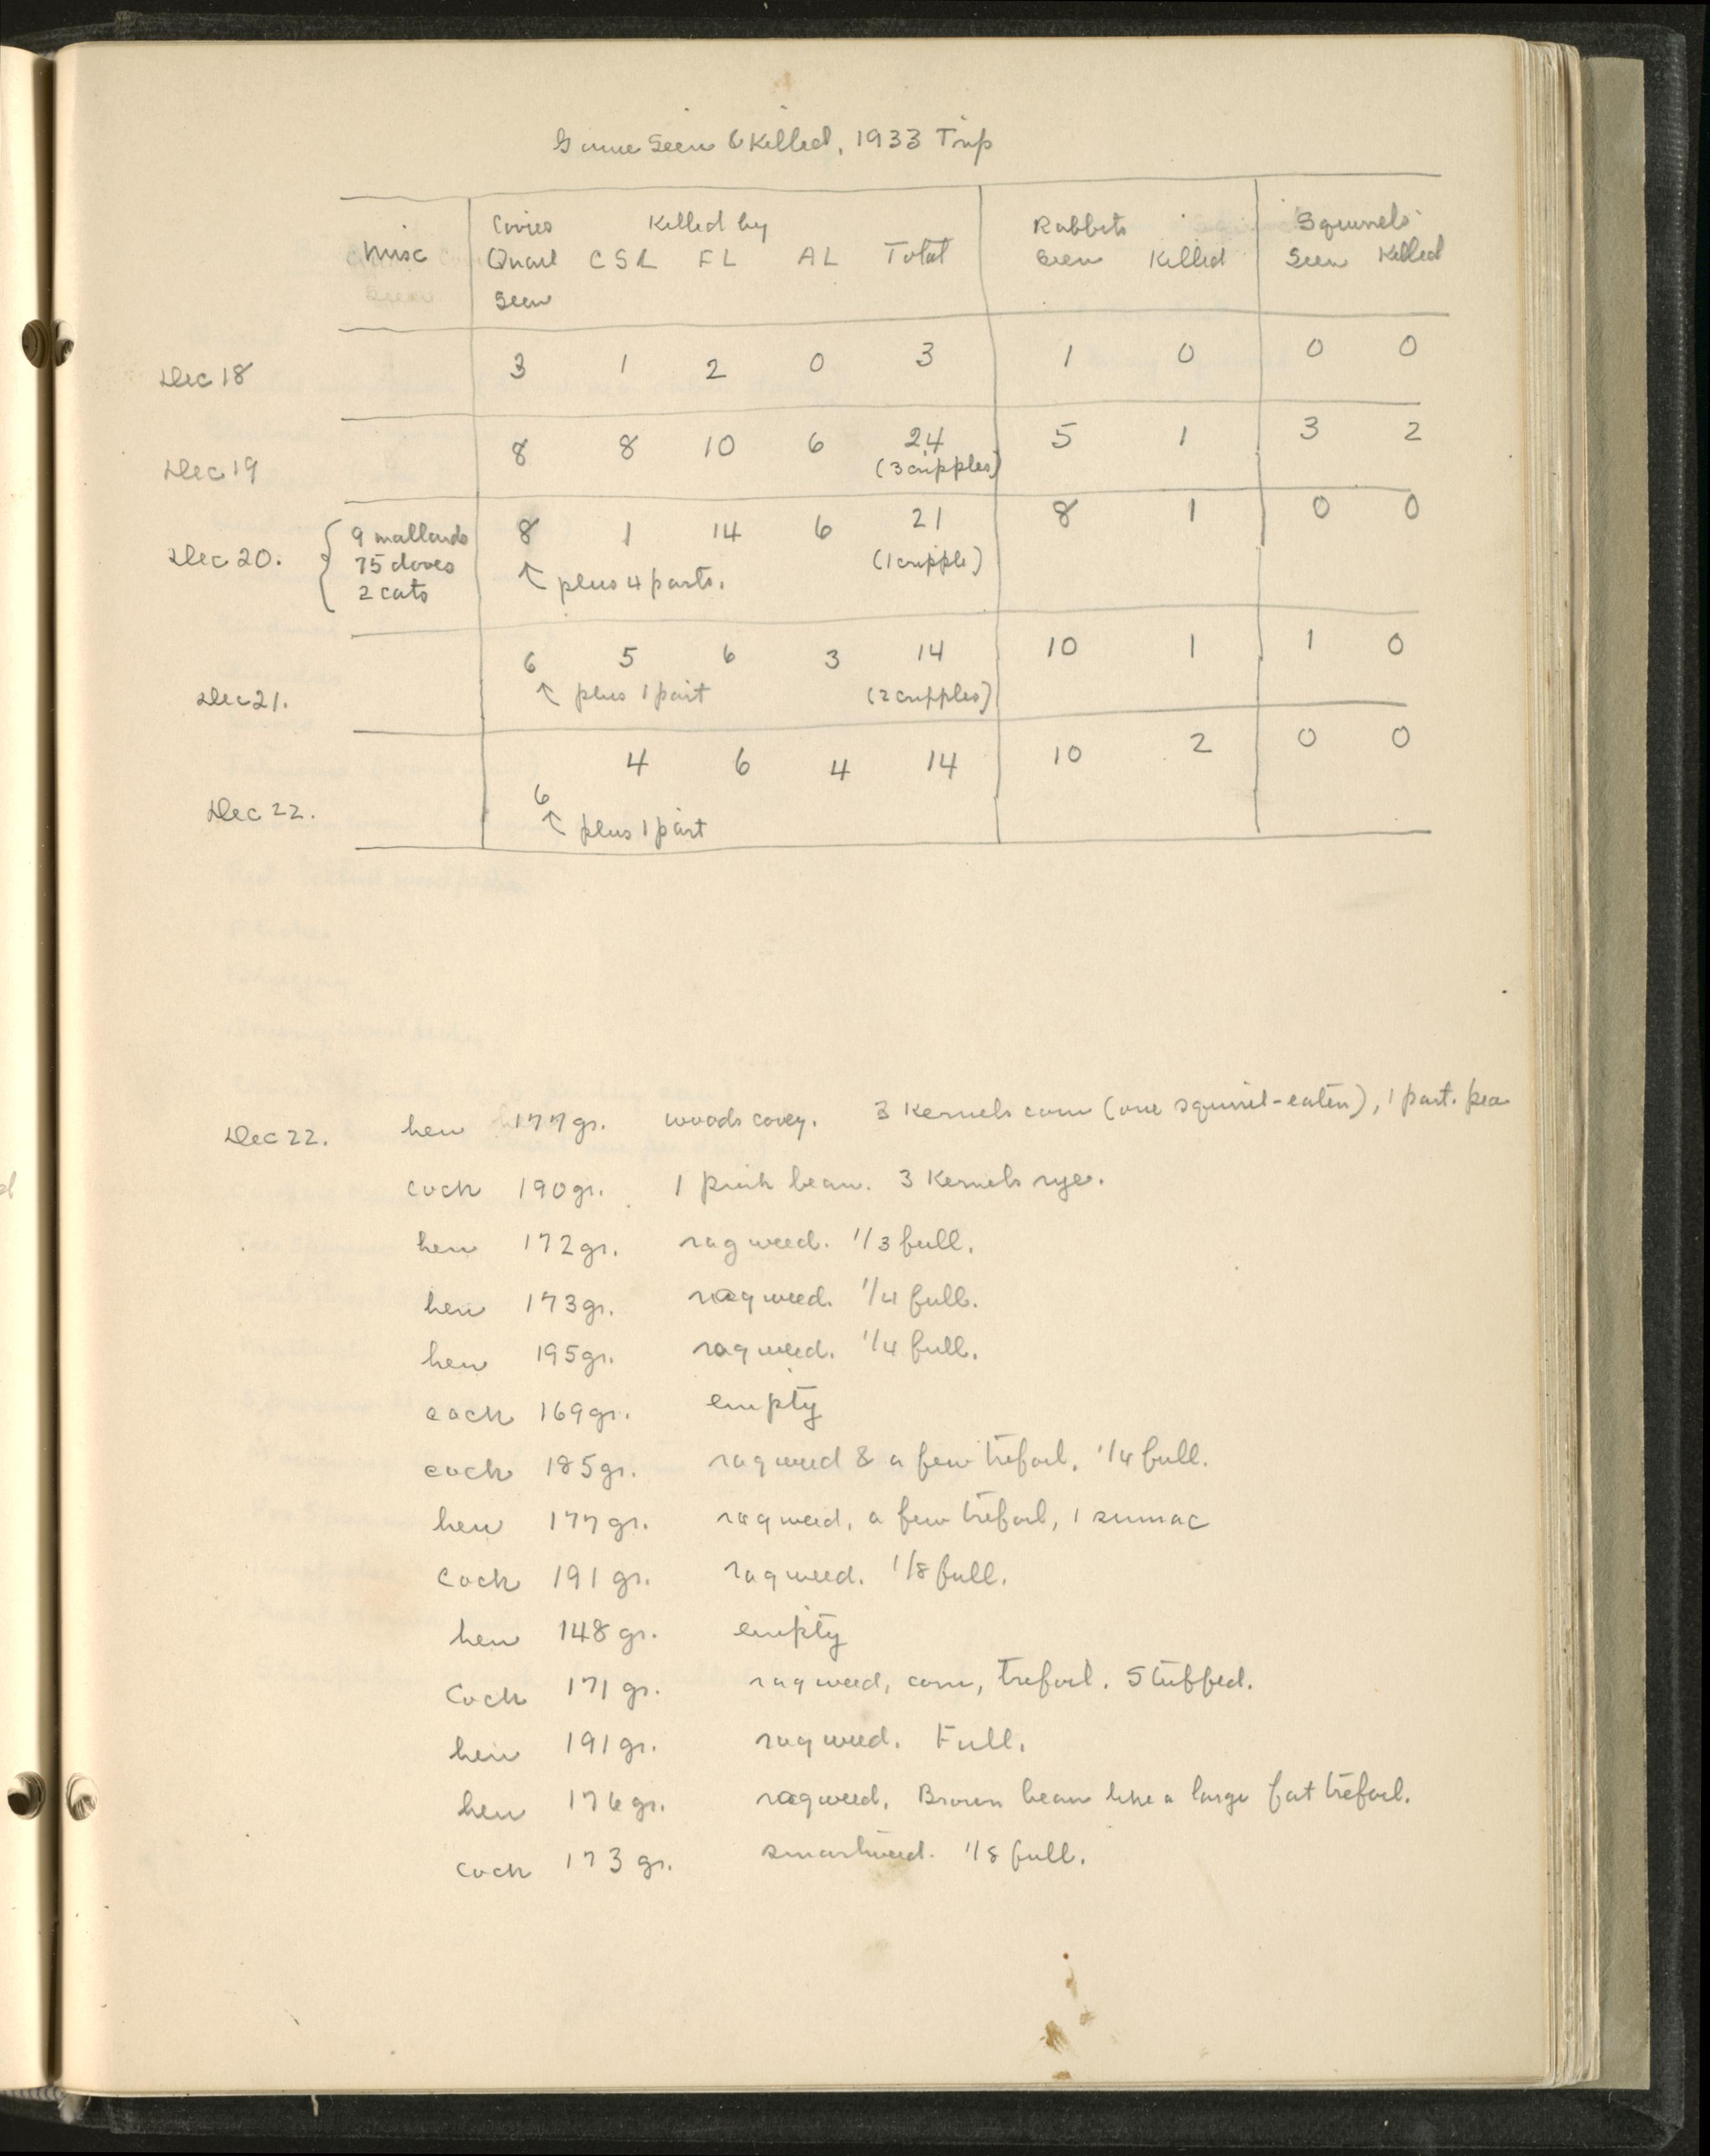 Game Seen & Killed, 1933 Trip
Misc Covies Killed by Rabbits Squirrels
Quail CSL FL AL Total Seen Killed Seen Killed
Seen
Dec 18 3 1 2 0 3 1 0 0 0
Dec 19 8 8 10 6 24 5 1 3 2
(3 cripples)
Dec 20. 9 mallards 8 1 14 6 21 8 1 0 0
75 doves (1 cripple)
2 cats ↑ plus 4 parts.
Dec 21. 6 5 6 3 14 10 1 1 0
↑ plus 1 part (2 cripples)
Dec 22. 6 4 6 4 14 10 2 0 0
↑ plus 1 part
Dec 22. hen 177 gr. woods covey. 3 Kernels corn (one squirrel-eaten), 1 part. pea
cock 190 gr. 1 pink bean. 3 Kernels rye.
hen 172 gr. ragweed. 1/3 full.
hen 173 gr. ragweed. 1/4 full.
hen 195 gr. ragweed. 1/4 full.
cock 169 gr. empty
cock 185 gr. ragweed & a few trefoil, 1/4 full.
hen 177 gr. ragweed, a few trefoil, 1 sumac
cock 191 gr. ragweed. 1/8 full.
hen 148 gr. empty
cock 171 gr. ragweed, corn, trefoil. Stuffed.
hen 191 gr. ragweed. Full.
hen 176 gr. ragweed. Brown bean like a large fat trefoil.
cock 173 gr. smartweed. 1/8 full.